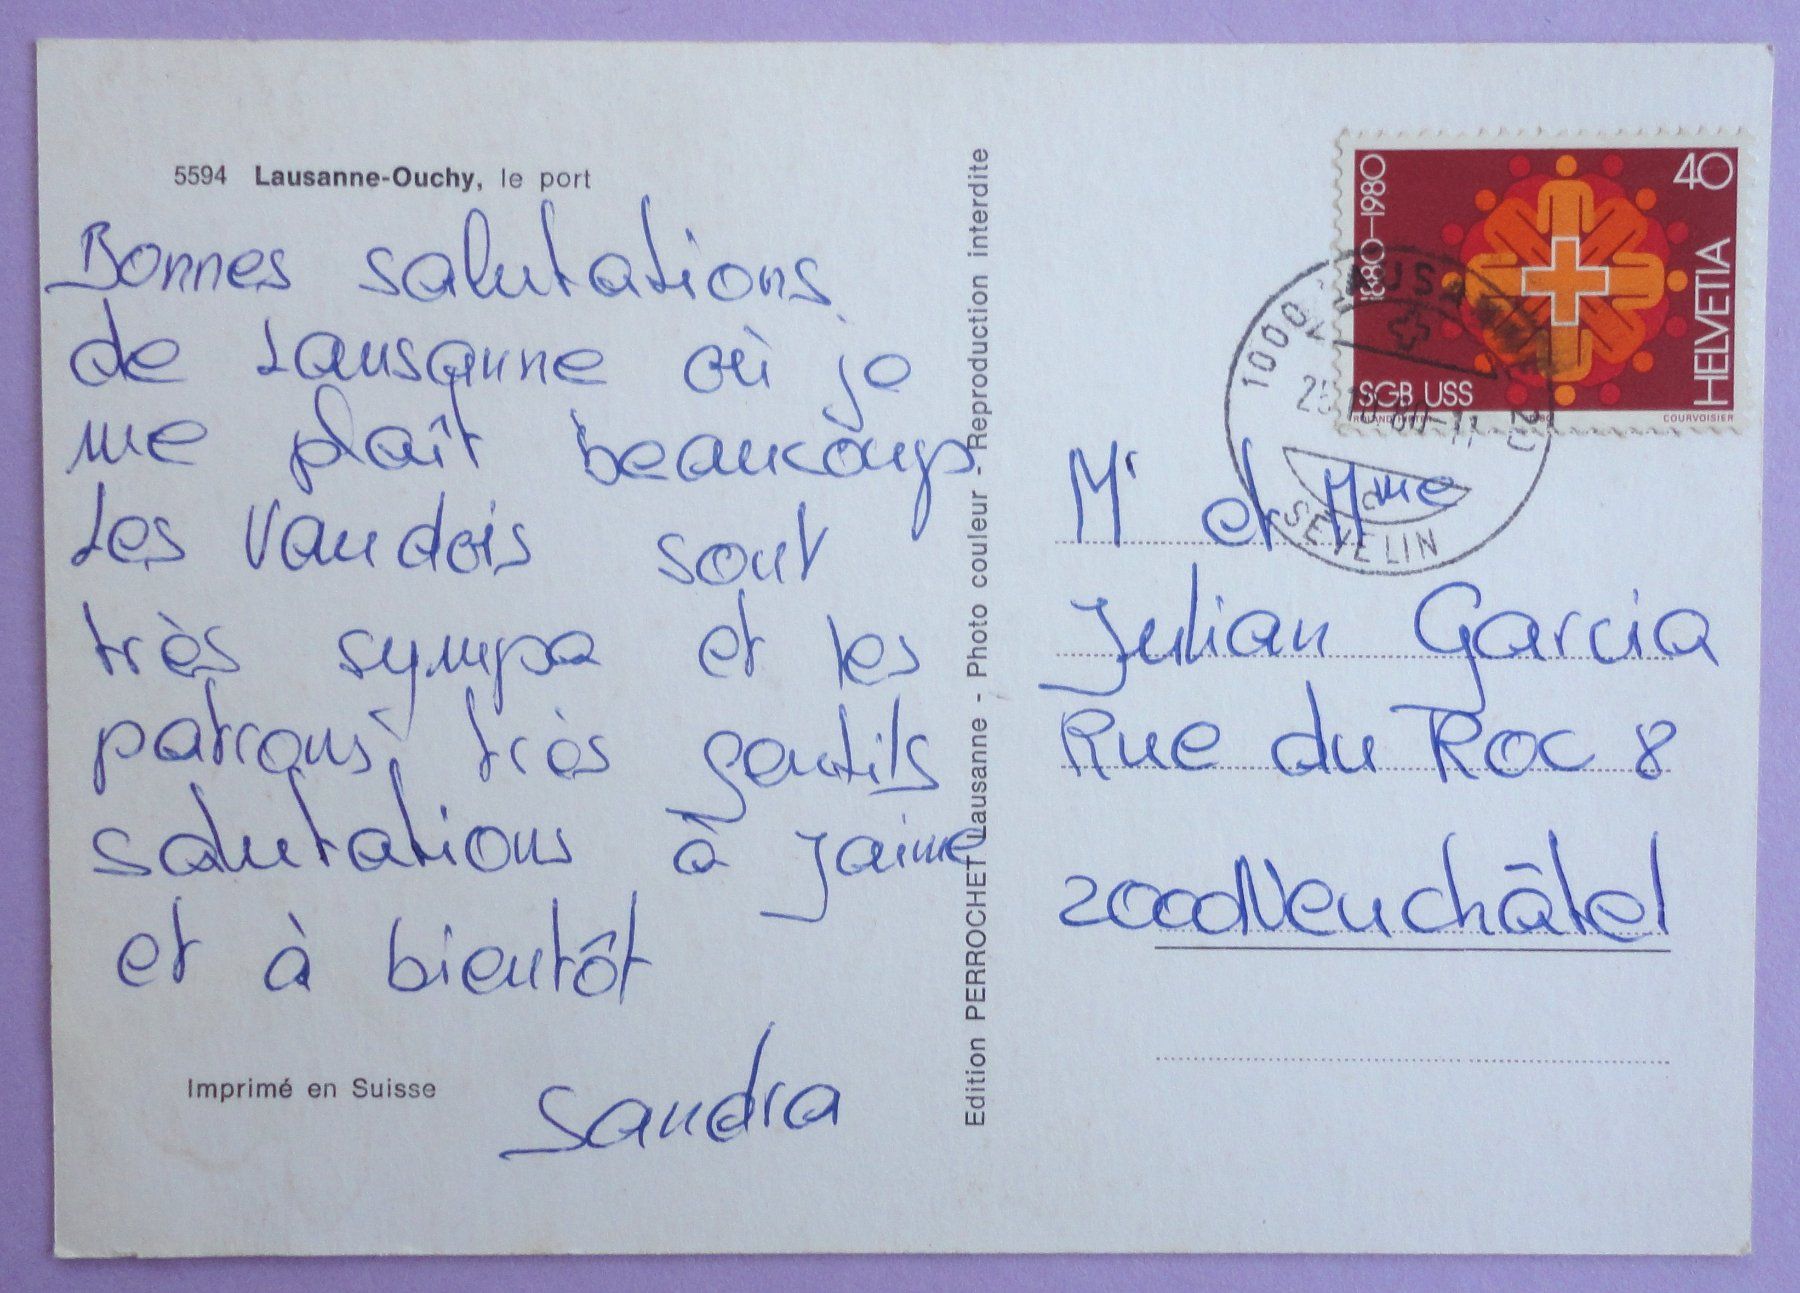 5594 Lausanne-Ouchy, le port
Bonnes salutations
de Lausanne où je
me plaît beaucoup
Les Vaudois sont
très sympa et les
patrons très gentils
salutations à Jaime
et à bientôt
Sandra
Imprimé en Suisse
Edition PERROCHET Lausanne - Photo couleur - Reproduction interdite
1880-1980
40
HELVETIA
SGB USS
COURVOISIER
1000 LAUSANNE
SÉVELIN
Mr et Mme
Julian Garcia
Rue du Roc 8
2000 Neuchâtel